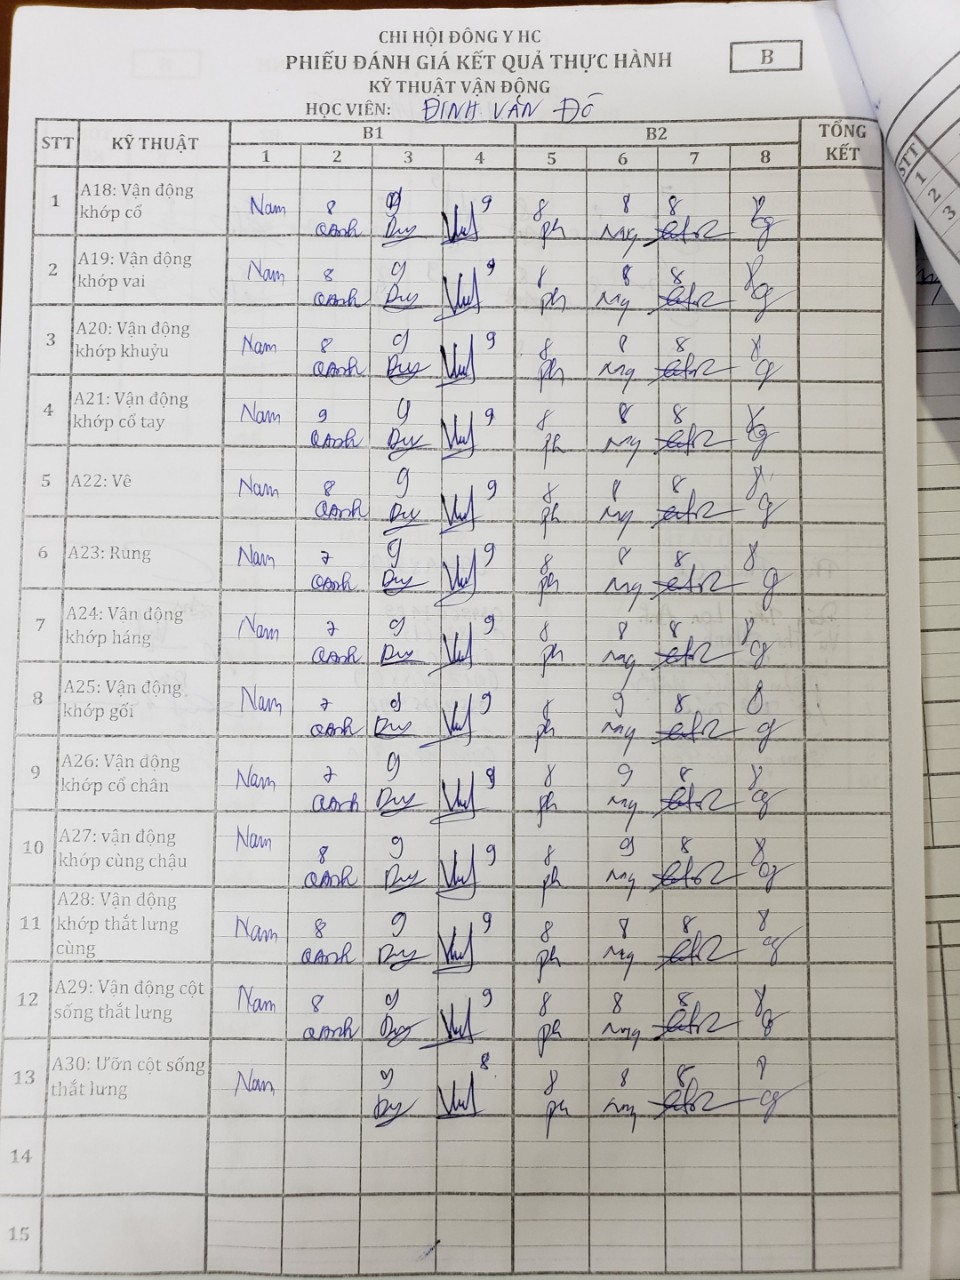 CHI HỘI ĐÔNG Y HC
PHIẾU ĐÁNH GIÁ KẾT QUẢ THỰC HÀNH
B
KỸ THUẬT VẬN ĐỘNG
HỌC VIÊN: ĐINH VĂN ĐÔ
STT KỸ THUẬT B1 B2 TỔNG KẾT
1 2 3 4 5 6 7 8
1 A18: Vận động khớp cổ Nam 8 9 9 8 8 8 8
Oanh Duy ph my
2 A19: Vận động khớp vai Nam 8 9 9 8 8 8 8
Oanh Duy ph my
3 A20: Vận động khớp khuỷu Nam 8 9 9 8 8 8 8
Oanh Duy ph my
4 A21: Vận động khớp cổ tay Nam 9 9 9 8 8 8 8
Oanh Duy ph my
5 A22: Vê Nam 8 9 9 8 8 8 8
Oanh Duy ph my
6 A23: Rung Nam 7 9 9 8 8 8 8
Oanh Duy ph my
7 A24: Vận động khớp háng Nam 7 9 9 8 8 8 8
Oanh Duy ph my
8 A25: Vận động khớp gối Nam 7 9 9 8 9 8 8
Oanh Duy ph my
9 A26: Vận động khớp cổ chân Nam 7 9 8 8 9 8 8
Oanh Duy ph my
10 A27: vận động khớp cùng chậu Nam 8 9 9 8 9 8 8
Oanh Duy ph my
11 A28: Vận động khớp thắt lưng cùng Nam 8 9 9 8 8 8 8
Oanh Duy ph my
12 A29: Vận động cột sống thắt lưng Nam 8 9 9 8 8 8 8
Oanh Duy ph my
13 A30: Ưỡn cột sống thắt lưng Nam 9 8 8 8 8
Duy ph my
14
15
STT
1
2
3